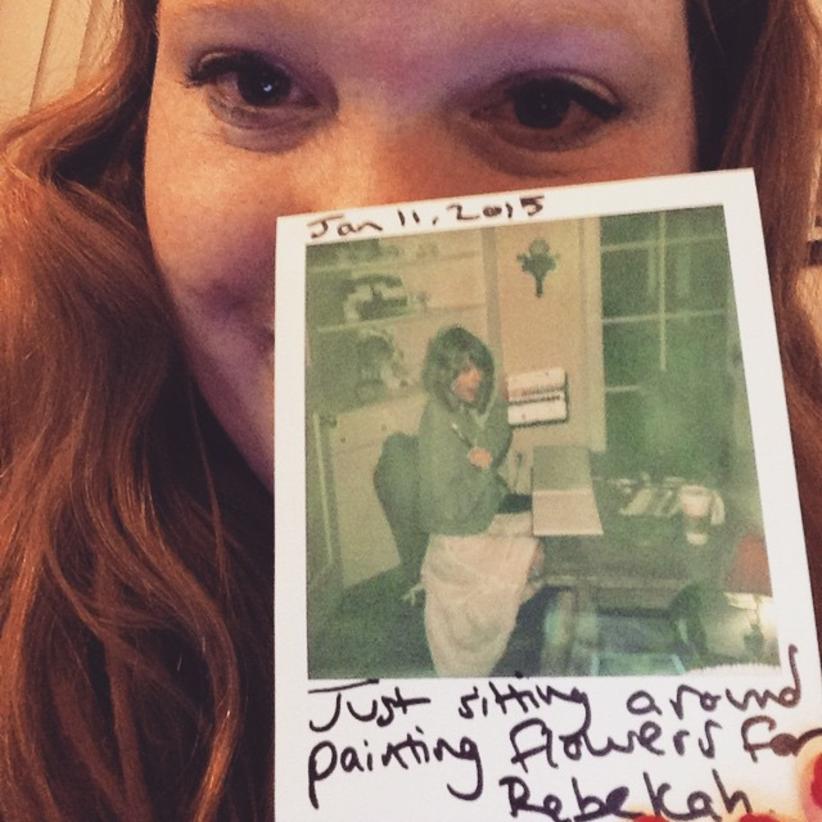 Jan 11, 2015
Just sitting around
painting flowers for
Rebekah